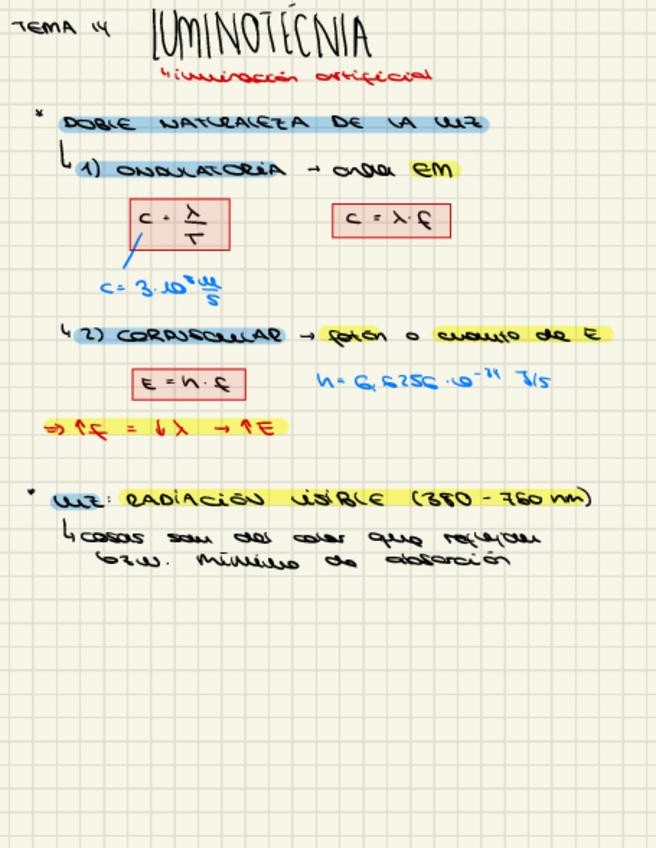 TEMA 14 LUMINOTÉCNIA
↳ iluminación artificial
* DOBLE NATURALEZA DE LA LUZ
↳ 1) ONDULATORIA → onda EM
c = λ/T c = λ·f
c = 3·10⁸ m/s
↳ 2) CORPUSCULAR → fotón o cuanto de E
E = h·f h = 6,6256·10⁻³⁴ J/s
⇒ ↑f = ↓λ → ↑E
* LUZ: RADIACIÓN VISIBLE (380 - 760 nm)
↳ cosas son del color que reflejan
mínimo de absorción